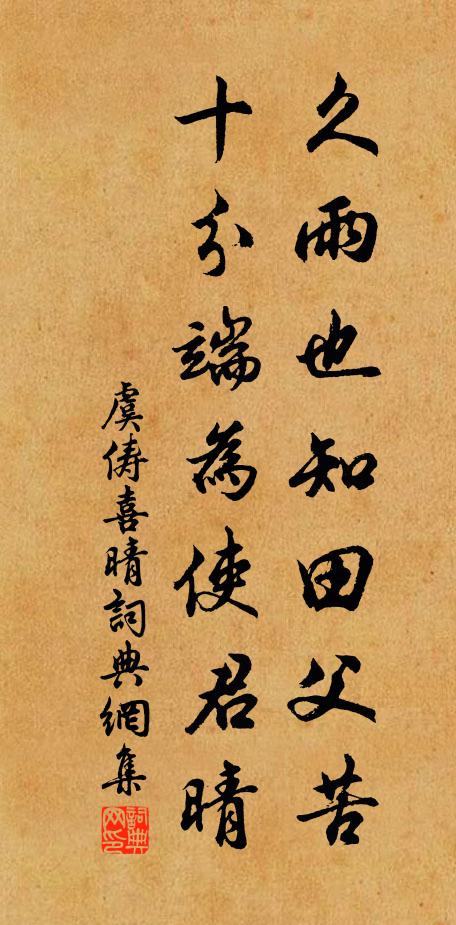 久雨也知田父苦
十分端為使君晴
虞儔喜晴詞典網集
詞典网印